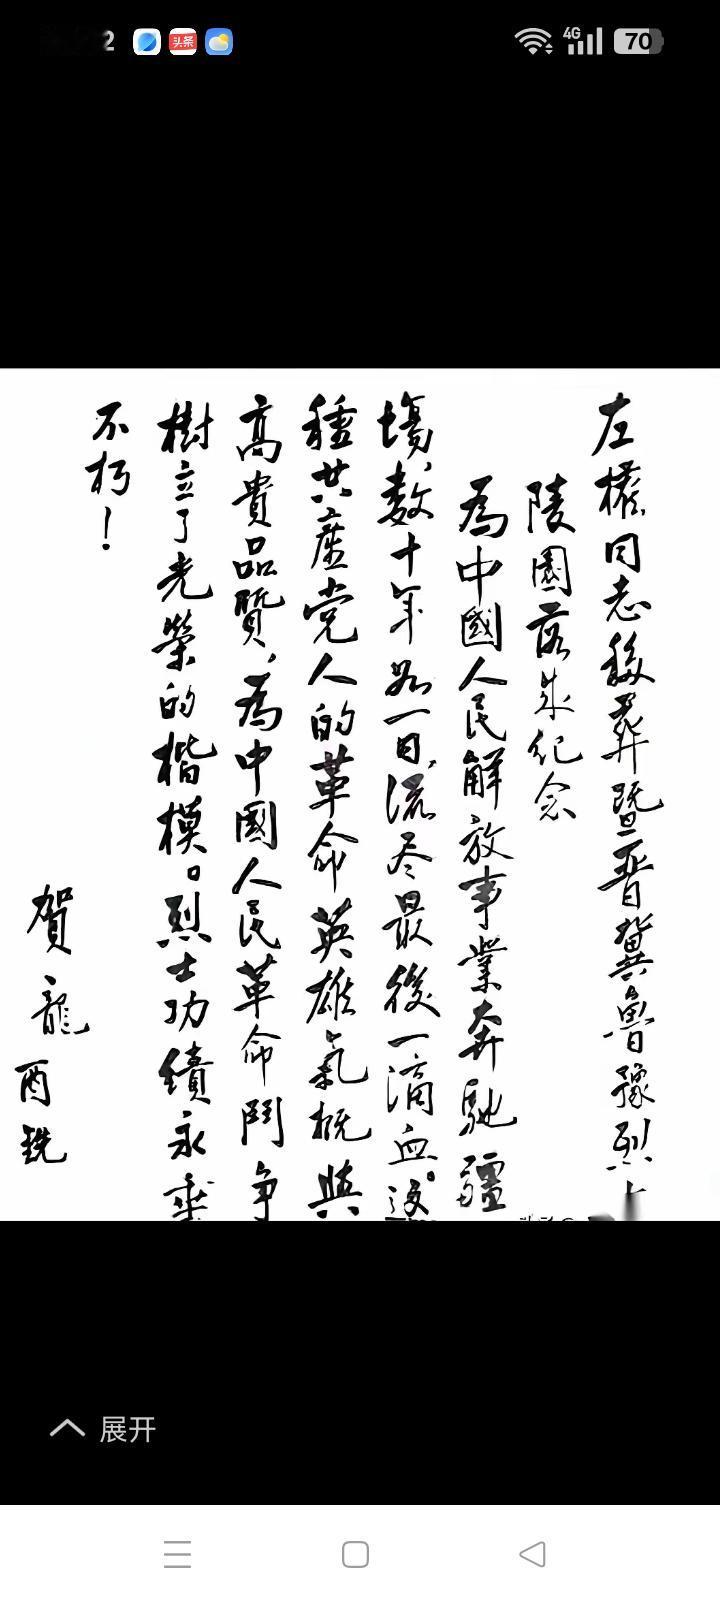 2 头条 4G 70
左權同志移葬暨晋冀魯豫烈士
陵園落成纪念
為中國人民解放事業奔馳疆
場，数十年如一日，流尽最後一滴血。这
種共產党人的革命英雄氣概與
高貴品質，為中國人民革命鬥争
樹立了光榮的楷模。烈士功績永垂
不朽！
賀龍
展开